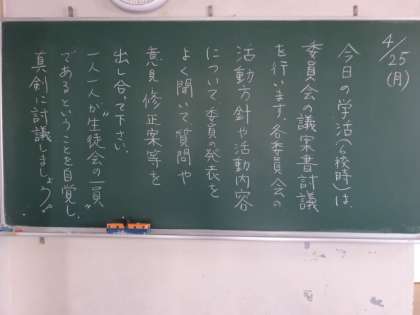 4/25(月)
今日の学活(6校時)は、
委員会の議案書討議
を行います。各委員会の
活動方針や活動内容
について委員の発表を
よく聞いて質問や
意見、修正案等を
出し合って下さい。
一人一人が“生徒会の一員”
であるということを自覚し、
真剣に討議しましょう。